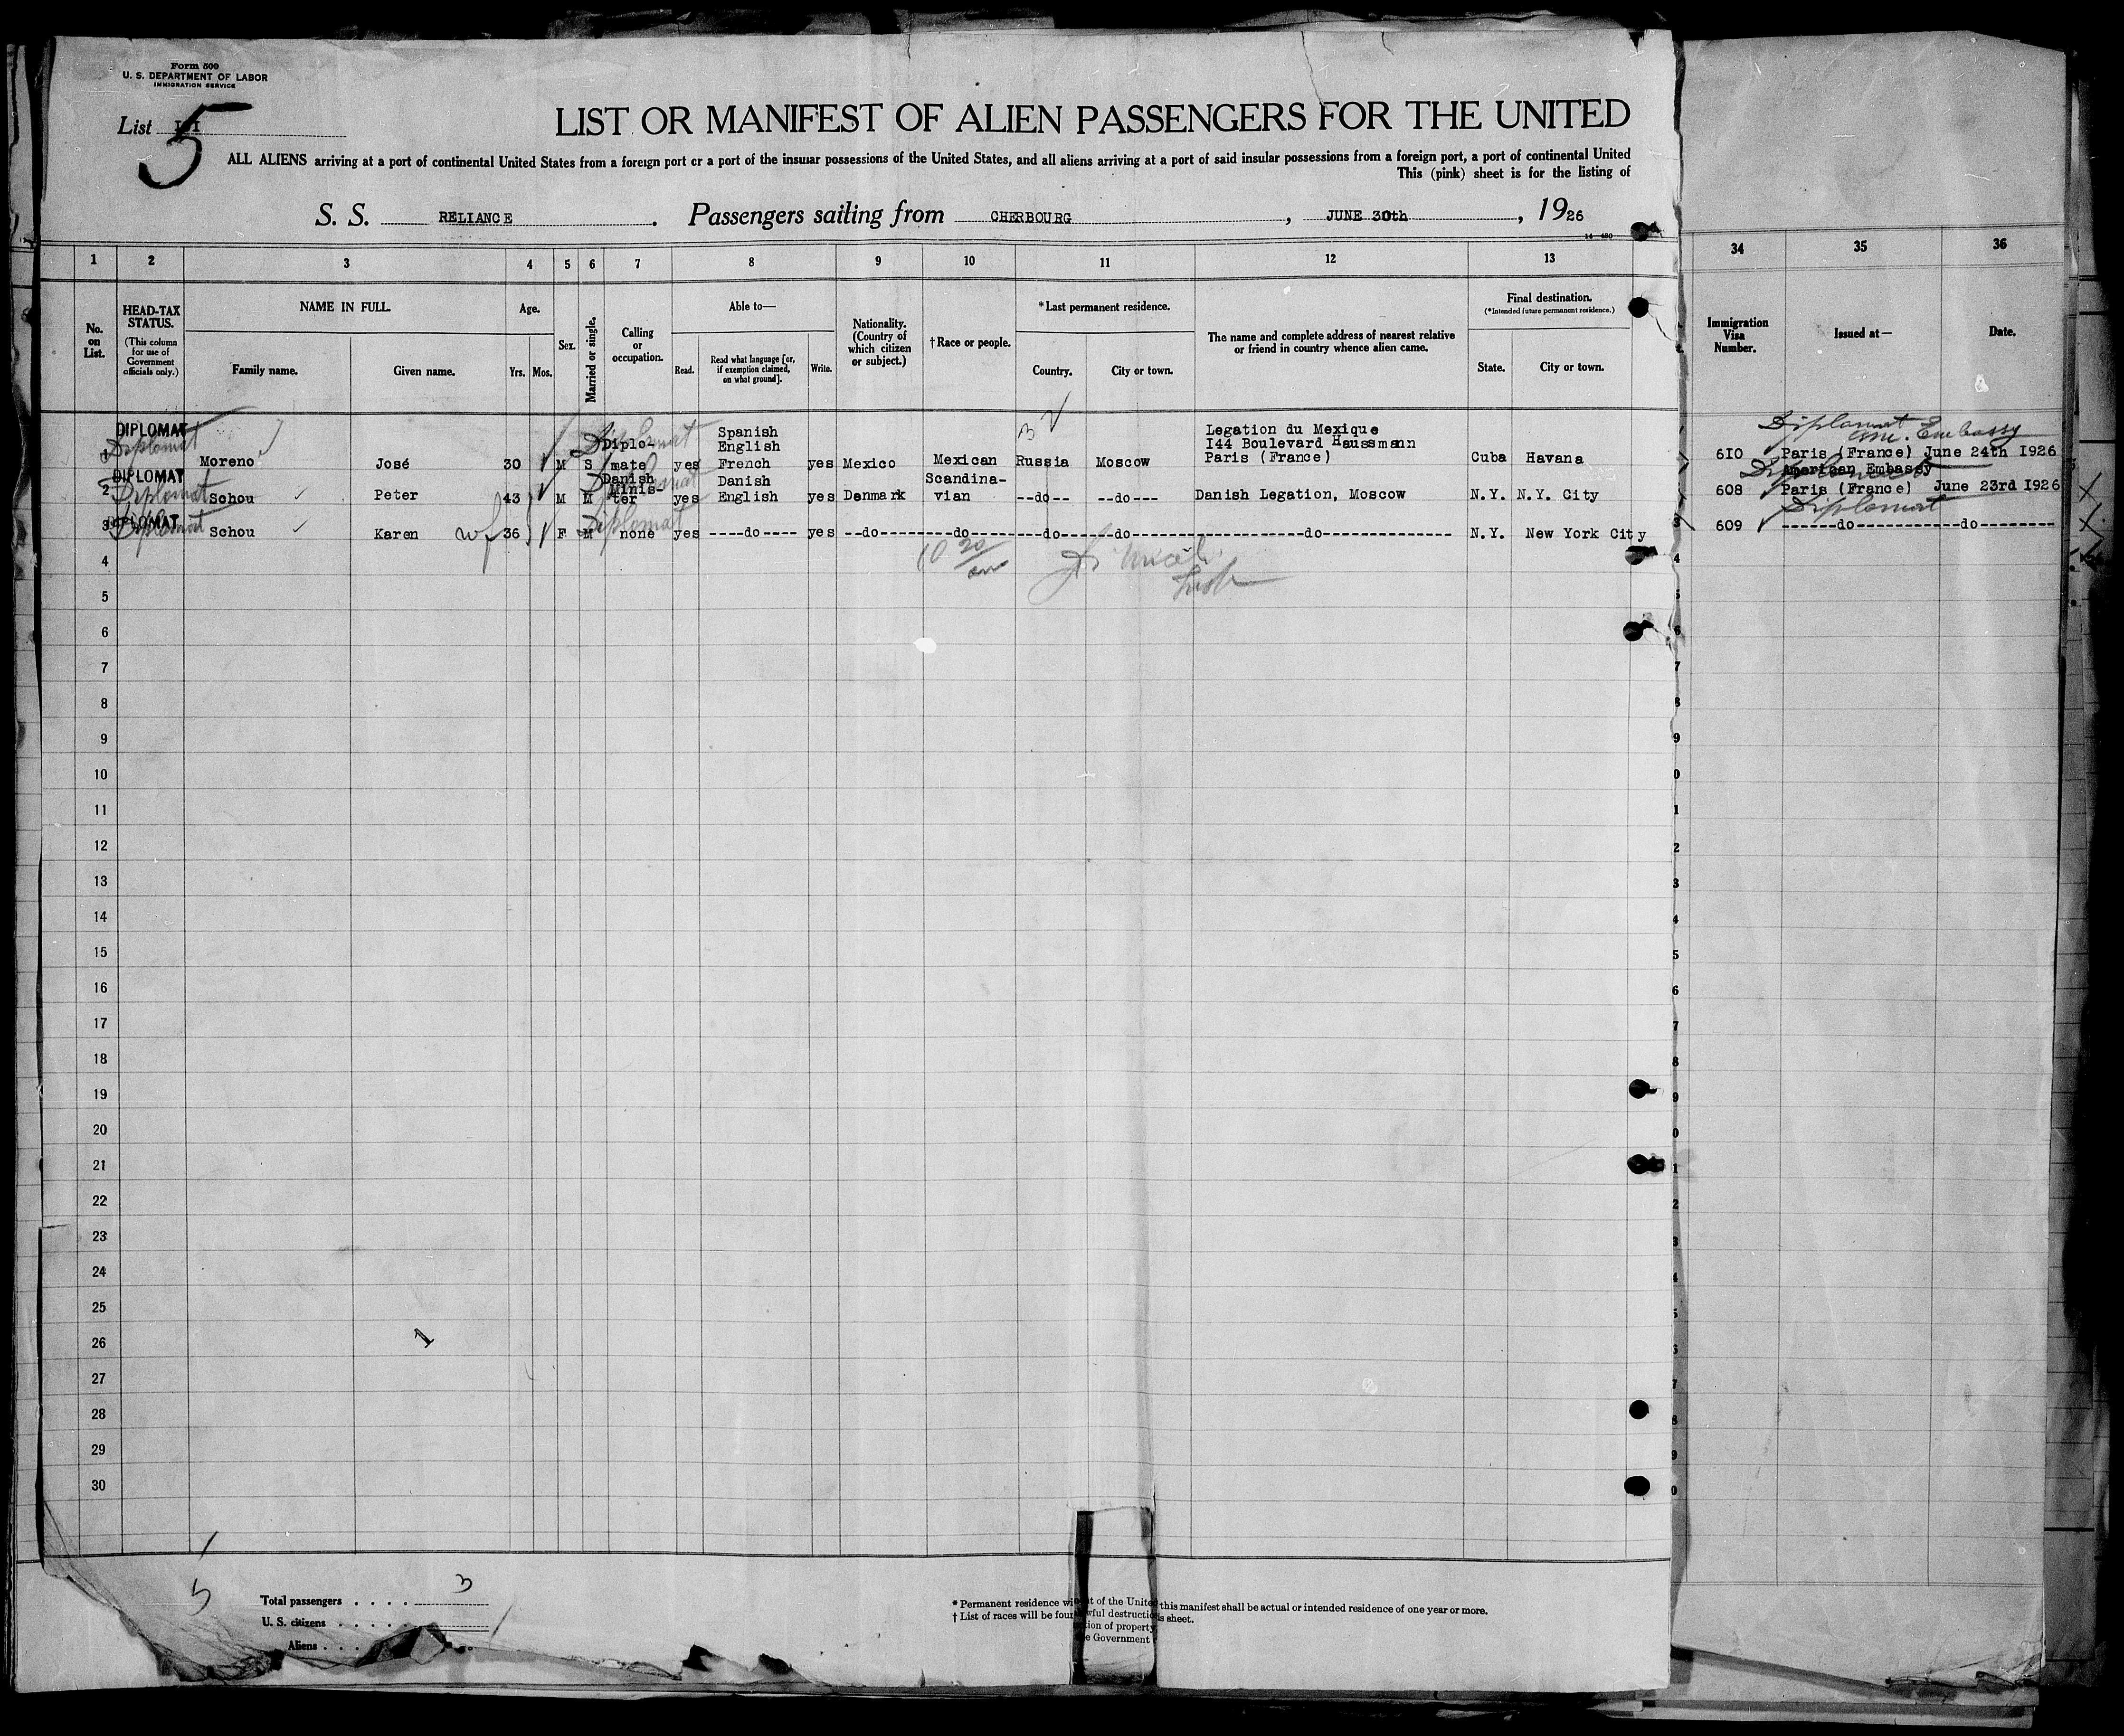 Form 500
U. S. DEPARTMENT OF LABOR
IMMIGRATION SERVICE
List
5
LIST OR MANIFEST OF ALIEN PASSENGERS FOR THE UNITED
ALL ALIENS arriving at a port of continental United States from a foreign port or a port of the insular possessions of the United States, and all aliens arriving at a port of said insular possessions from a foreign port, a port of continental United
This (pink) sheet is for the listing of
S. S. RELIANCE. Passengers sailing from CHERBOURG, JUNE 30th, 1926
1 2 3 4 5 6 7 8 9 10 11 12 13 34 35 36
No. on List.
HEAD-TAX STATUS.
(This column for use of Government officials only.)
NAME IN FULL.
Family name. Given name.
Age.
Yrs. Mos.
Sex.
Married or single.
Calling or occupation.
Able to—
Read.
Read what language [or, if exemption claimed, on what ground].
Write.
Nationality. (Country of which citizen or subject.)
†Race or people.
*Last permanent residence.
Country. City or town.
The name and complete address of nearest relative or friend in country whence alien came.
Final destination.
(*Intended future permanent residence.)
State. City or town.
Immigration Visa Number.
Issued at—
Date.
DIPLOMAT Diplomat Moreno José 30 M S Diplo-mate Diplomat yes Spanish English French yes Mexico Mexican Russia Moscow Legation du Mexique I44 Boulevard Haussmann Paris (France) Cuba Havana 6I0 Diplomat Am. Embassy Paris (France) June 24th I926
2 DIPLOMAT Diplomat Schou Peter 43 M M Danish Minis-ter Diplomat yes Danish English yes Denmark Scandina-vian --do-- --do--- Danish Legation, Moscow N.Y. N.Y. City 608 American Embassy Diplomat Paris (France) June 23rd I926
3 DIPLOMAT Diplomat Schou Karen wf 36 F M none Diplomat yes ----do---- yes --do---------do---------do------do---------------do--------------- N.Y. New York City 609 Diplomat ------do------------do---------
10 20/am
4
5
6
7
8
9
10
11
12
13
14
15
16
17
18
19
20
21
22
23
24
25
26
27
28
29
30
1
5
Total passengers . . . . 3
U. S. citizens . . . . .
Aliens . . .
* Permanent residence wi
this manifest shall be actual or intended residence of one year or more.
† List of races will be four
s sheet.
t of the Unite
wful destructi
tion of property
e Government